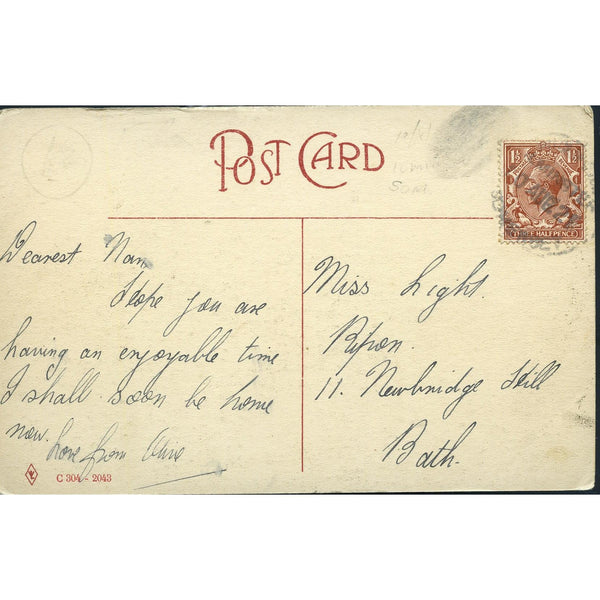 POST CARD
1½ 1½
THREE HALFPENCE
Dearest Nan
Hope you are
having an enjoyable time
I shall soon be home
now.
Love from Olive
Miss Light.
Ripon.
11. Newbridge Hill
Bath.
C 304 - 2043